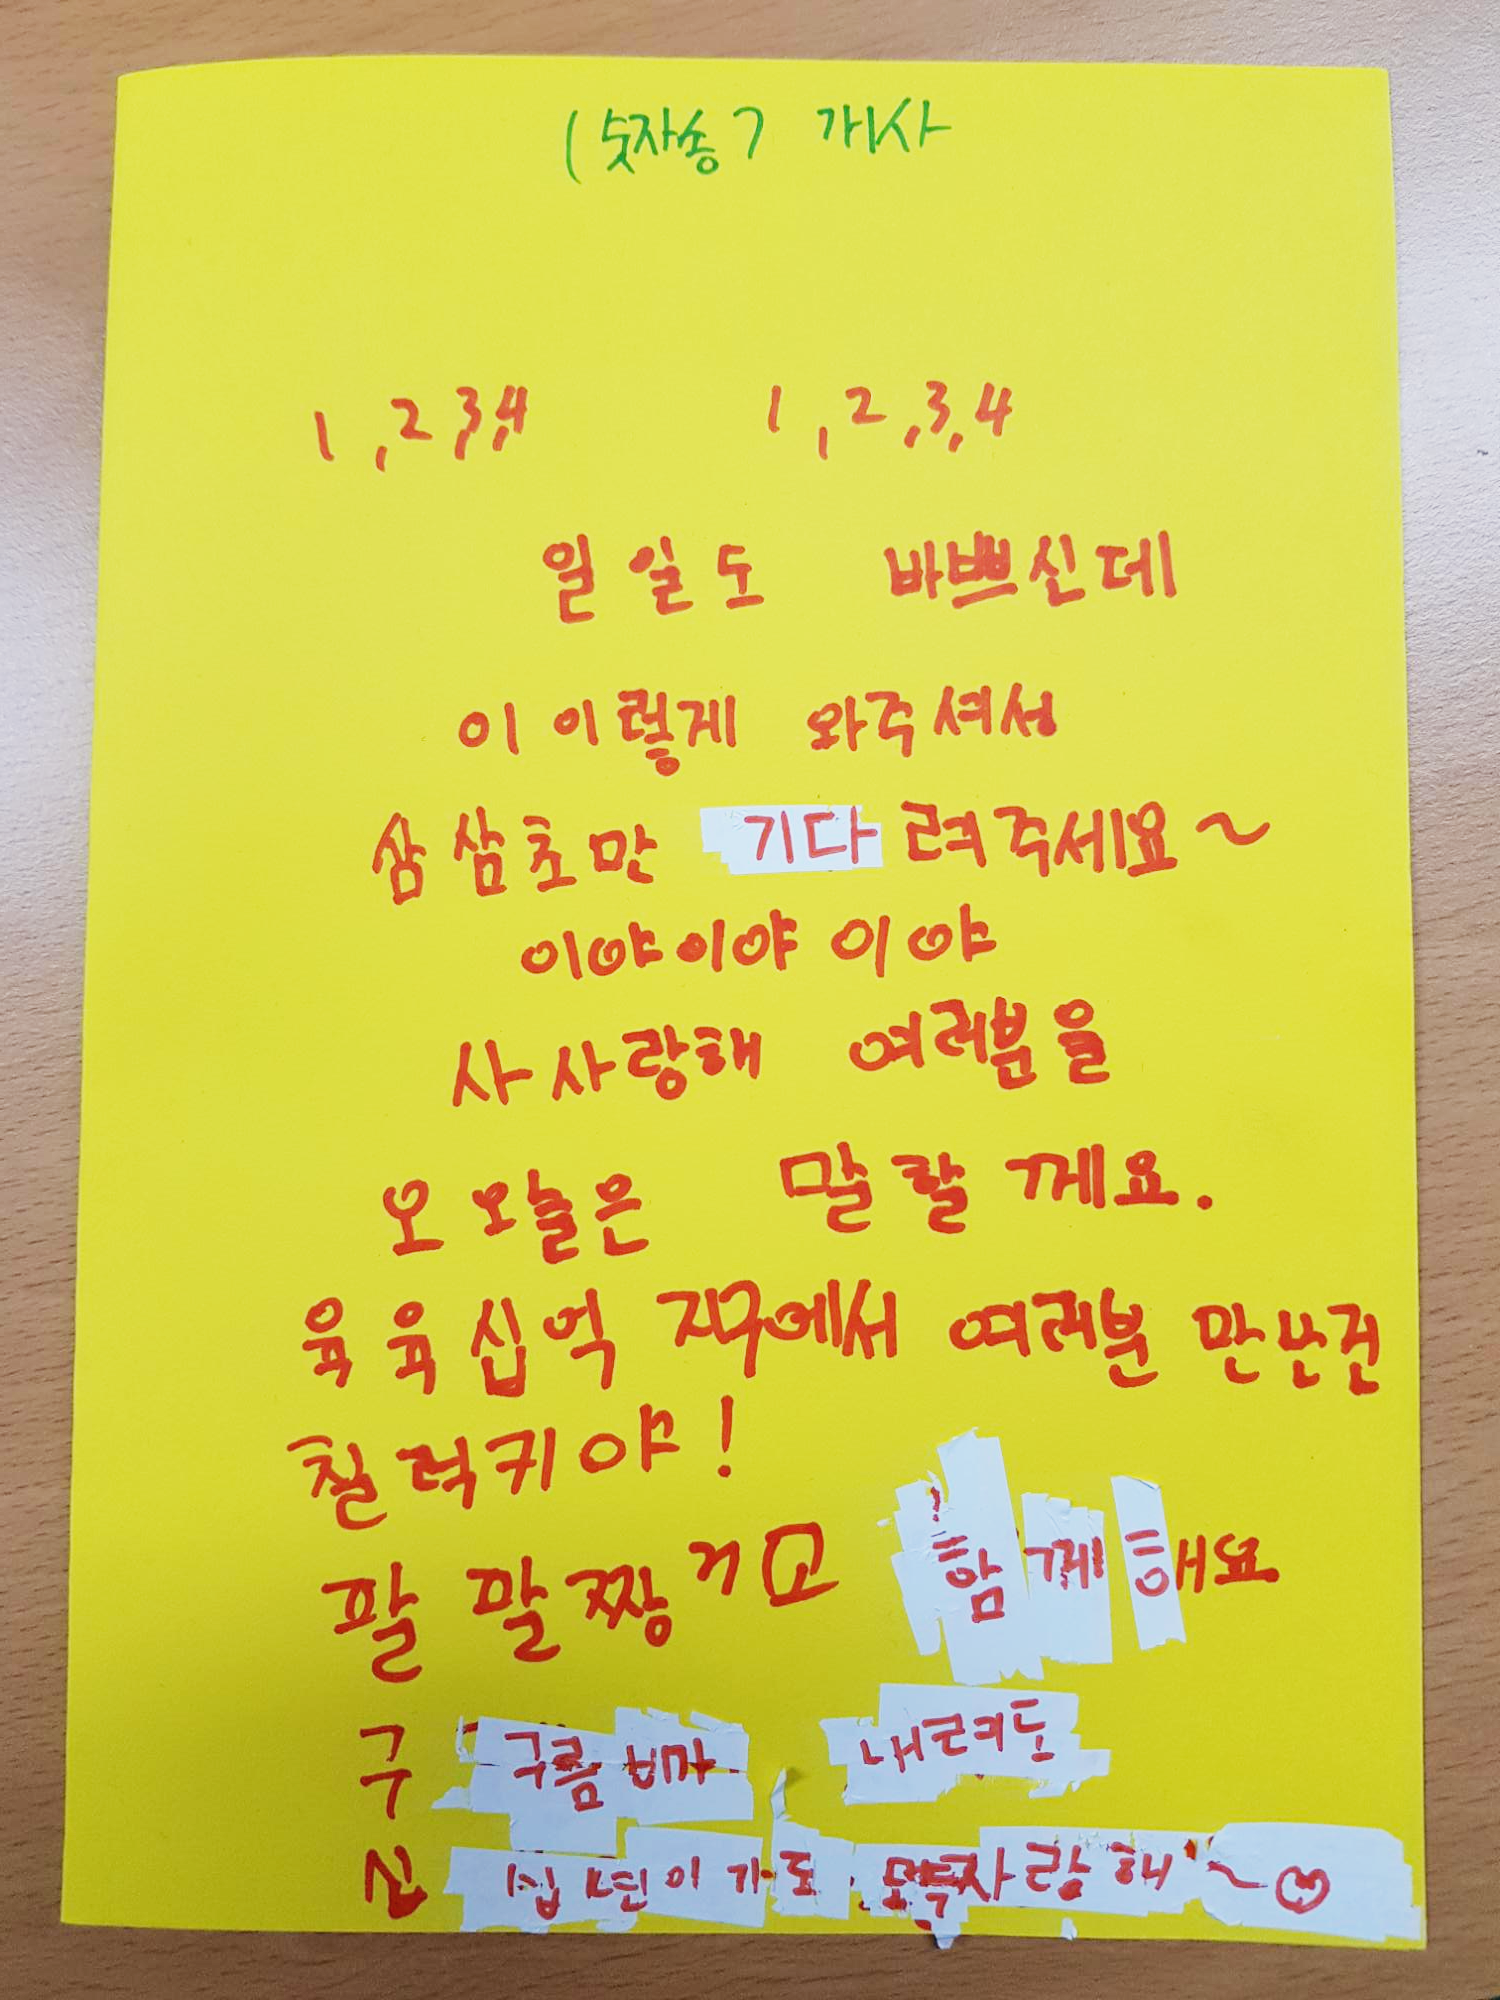 (숫자송7 개사
1,2,3,4 1,2,3,4
일 일도 바쁘신데
이 이렇게 와주셔서
삼 삼초만 기다려주세요~
이야이야이야
사 사랑해 여러분을
오 오늘은 말할께요.
육 육십억 지구에서 여러분 만난건
칠 럭키야!
팔 말짱끼고 함께해요
구 구름 내려도
십 십년이가도 모두사랑해~